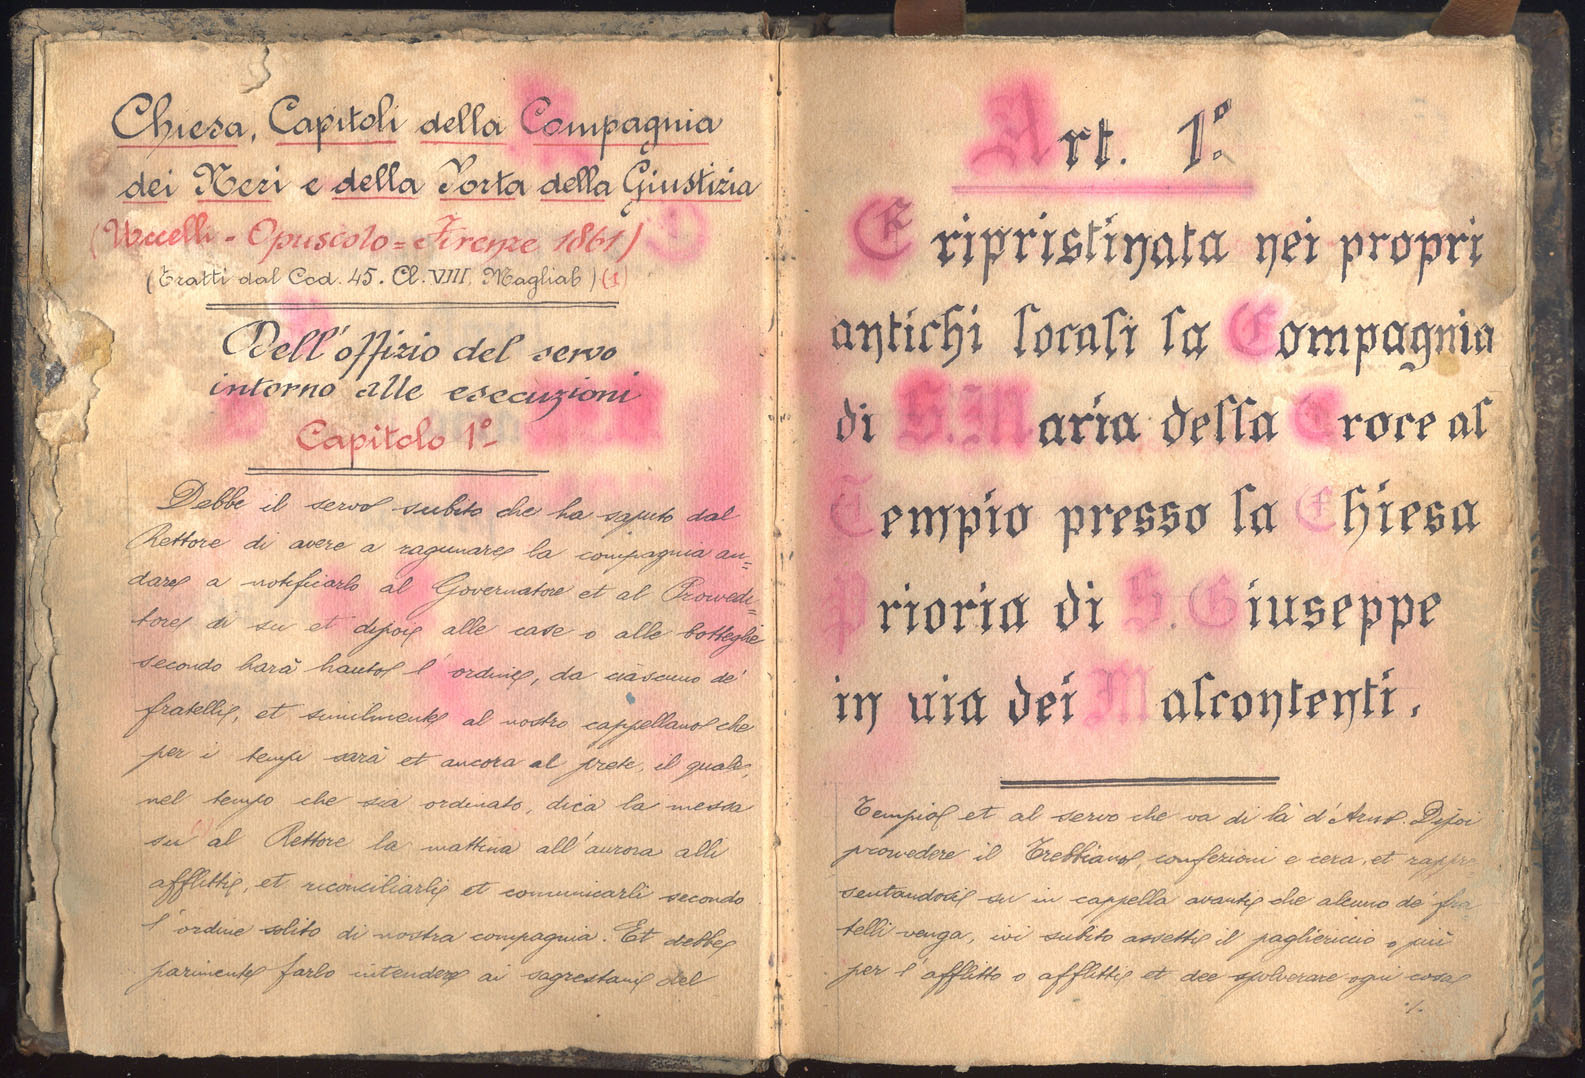 Chiesa, Capitoli della Compagnia
dei Neri e della Porta della Giustizia
(Uccelli - Opuscolo = Firenze 1861)
(Tratti dal Cod. 45. Cl. VIII. Magliab) (1)
Dell'offizio del servo
intorno alle esecuzioni
Capitolo 1º-
Debbe il servo subito che ha saputo dal
Rettore di avere a ragunare la compagnia an=
dare a notificarlo al Governatore et al Provvedi=
tore di su et dipoi alle case o alle botteghe
secondo harà hauto l'ordine, da ciascuno de'
fratelli, et similmente al nostro cappellano che
per i tempi sarà et ancora al prete, il quale,
nel tempo che sia ordinato, dica la messa
su al Rettore la mattina all'aurora alli
afflitti, et riconciliarli et comunicarli secondo
l'ordine solito di nostra compagnia. Et debbe
parimente farlo intendere ai sagrestani del
Art. 1º.
E ripristinata nei propri
antichi locali la Compagnia
di S. Maria della Croce al
Tempio presso la Chiesa
Prioria di S. Giuseppe
in via dei Malcontenti.
Tempio et al servo che va di là d'Arno. Dipoi
provvedere il Trebbiano, confezioni e cera, et rappre
sentandosi su in cappella avanti che alcuno de' fra
telli venga, ivi subito assetti il pagliericcio o più
per l'afflitto o afflitti et dee spolverare ogni cosa
./.